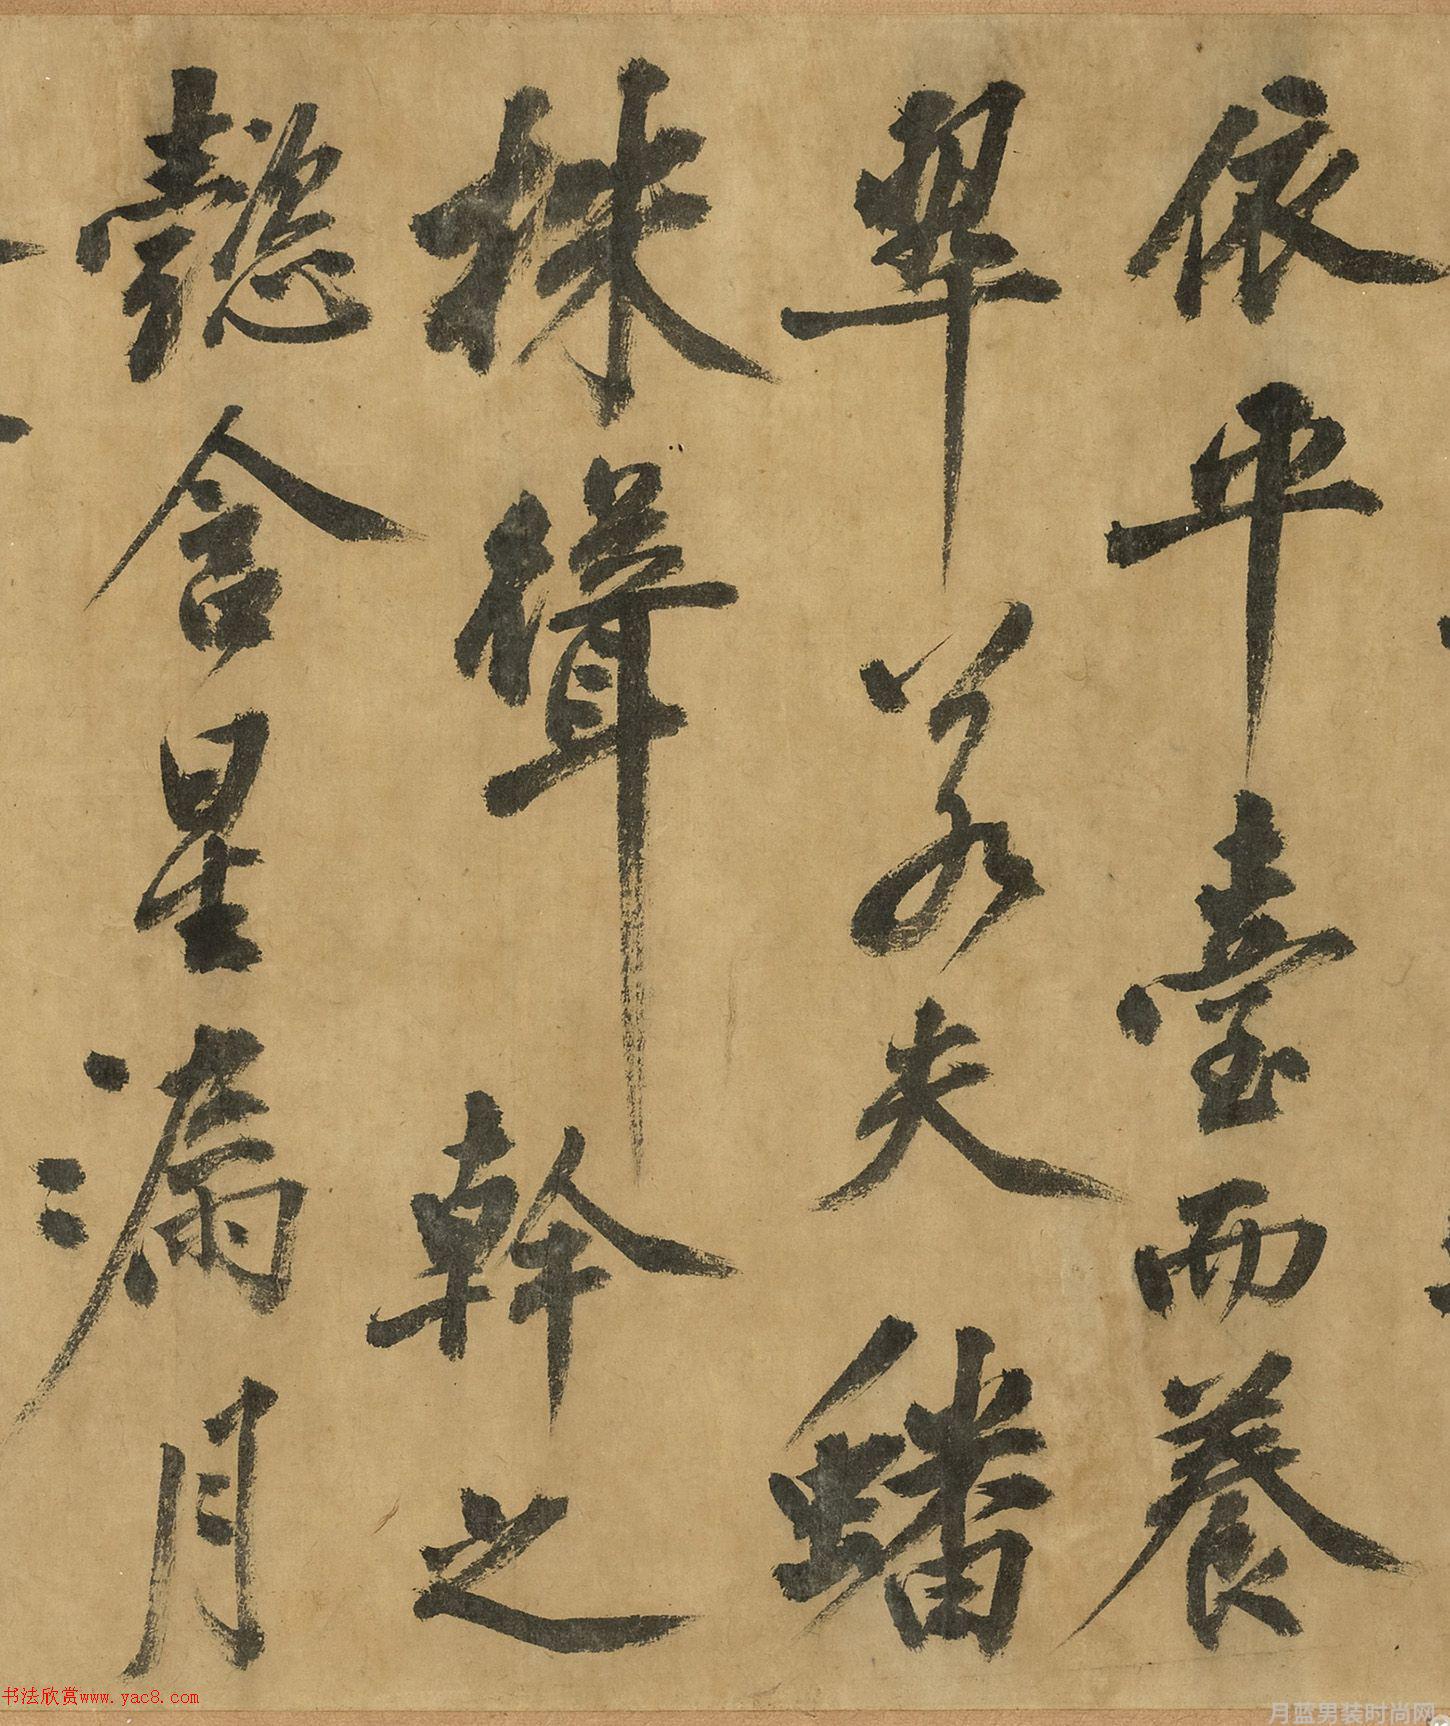 依平臺而養
翠若夫蟠
株聳幹之
懿含星漏月
书法欣赏www.yac8.com
月蓝男装时尚网